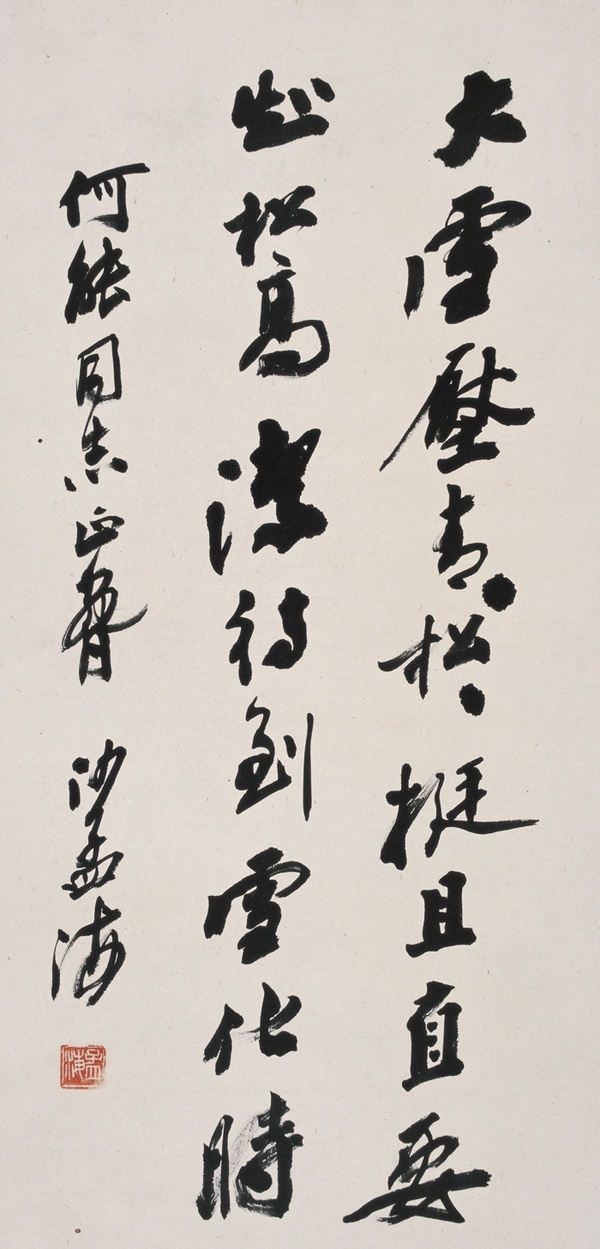 大雪壓青々松々挺且直要
知松高潔待到雪化時
何能同志正
沙孟海
孟海